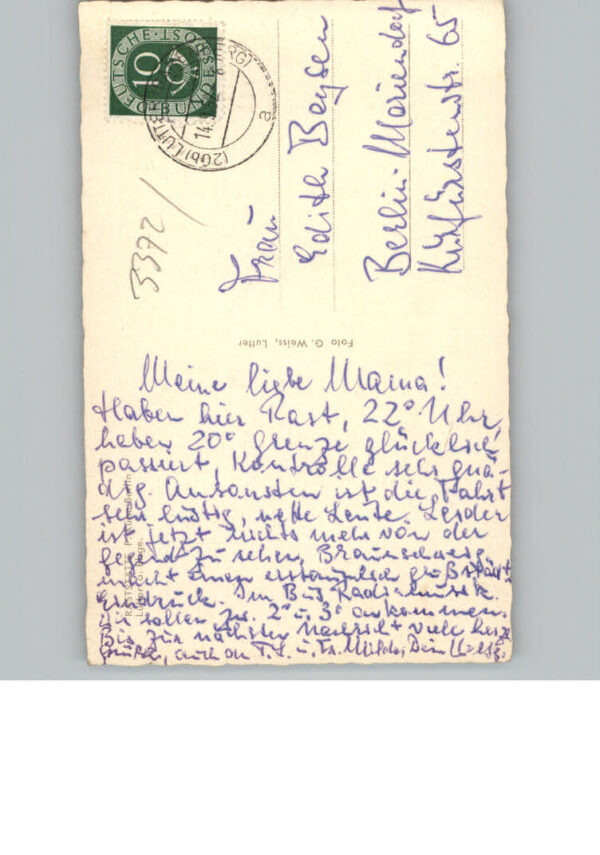 DEUTSCHE BUNDESPOST
10
(20b) LUTTER
a
3372/
Frau
Edith Beysen
Berlin-Mariendorf
Kurfürstenstr. 65
Foto G. Weiss, Lutter
Meine liebe Mama!
Haben hier Rast, 22° Uhr,
haben 20° Grenze glücklich
passiert, Kontrolle sehr gnä-
dig. Ansonsten ist die Fahrt
sehr lustig, nette Leute. Leider
ist jetzt nichts mehr von der
Gegend zu sehen, Braunschweig
macht einen erstaunlich großstädt.
Eindruck. Im Bus Radiomusik.
Wir sollen zw. 2° u. 3° ankommen.
Bis zur nächsten Nachricht viele herzl.
Grüße, auch an T. L. u. Fr. Milch, Dein